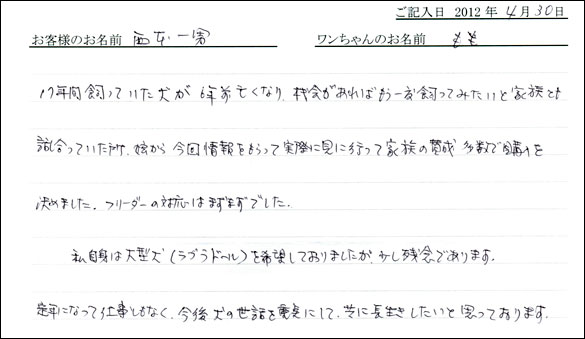 ご記入日 2012年4月30日
お客様のお名前 西本一男 ワンちゃんのお名前 もも
17年間飼っていた犬が6年前亡くなり、機会があればもう一度飼ってみたいと家族とも
話合っていた所、娘から今回情報をもらって実際に見に行って家族の賛成多数で購入を
決めました。ブリーダーの対応はまずまずでした。
私自身は大型犬(ラブラドール)を希望しておりましたが、少し残念であります。
定年になって仕事もなく、今後犬の世話を重点にして、共に長生きしたいと思っております。